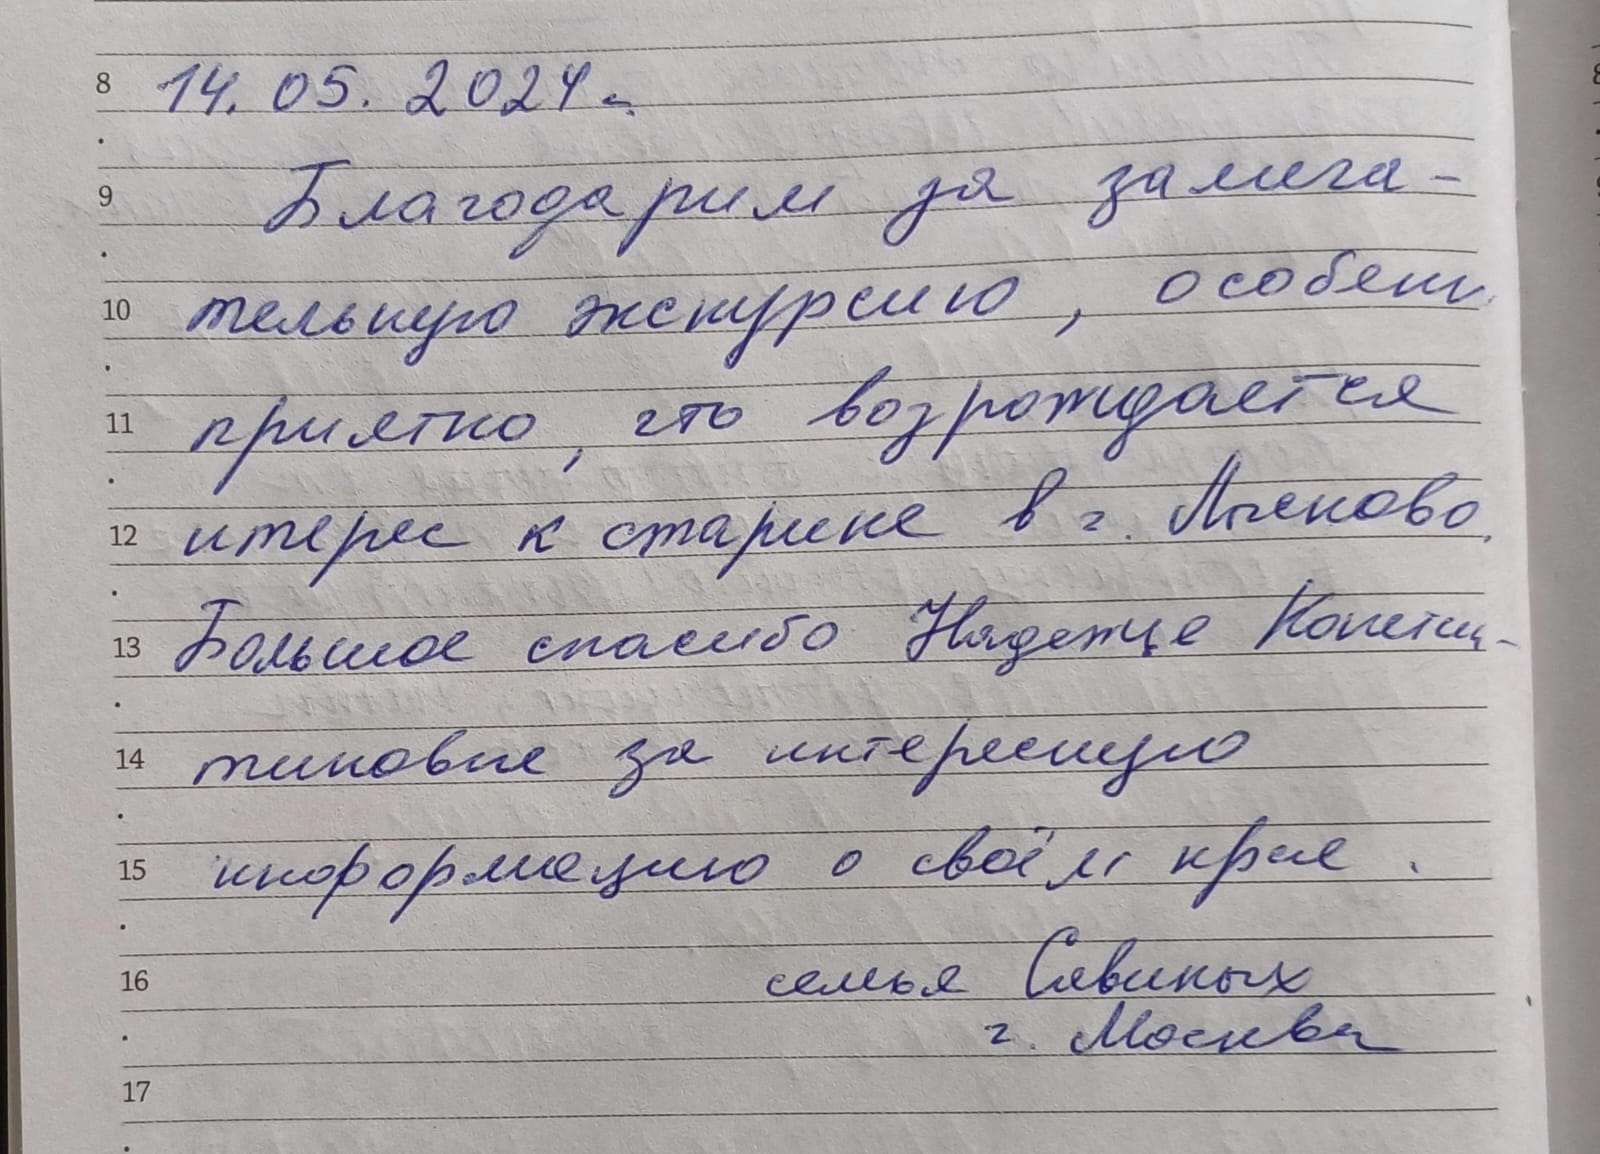 8 14.05.2024г.
9 Благодарим за замеча-
10 тельную экскурсию, особенн
11 приятно, что возрождается
12 итерес к старине в г. Лысково.
13 Большое спасибо Надежде Констан-
14 тиновне за интересную
15 информацию о своём крае.
16 семья Савиных
г. Москва
17